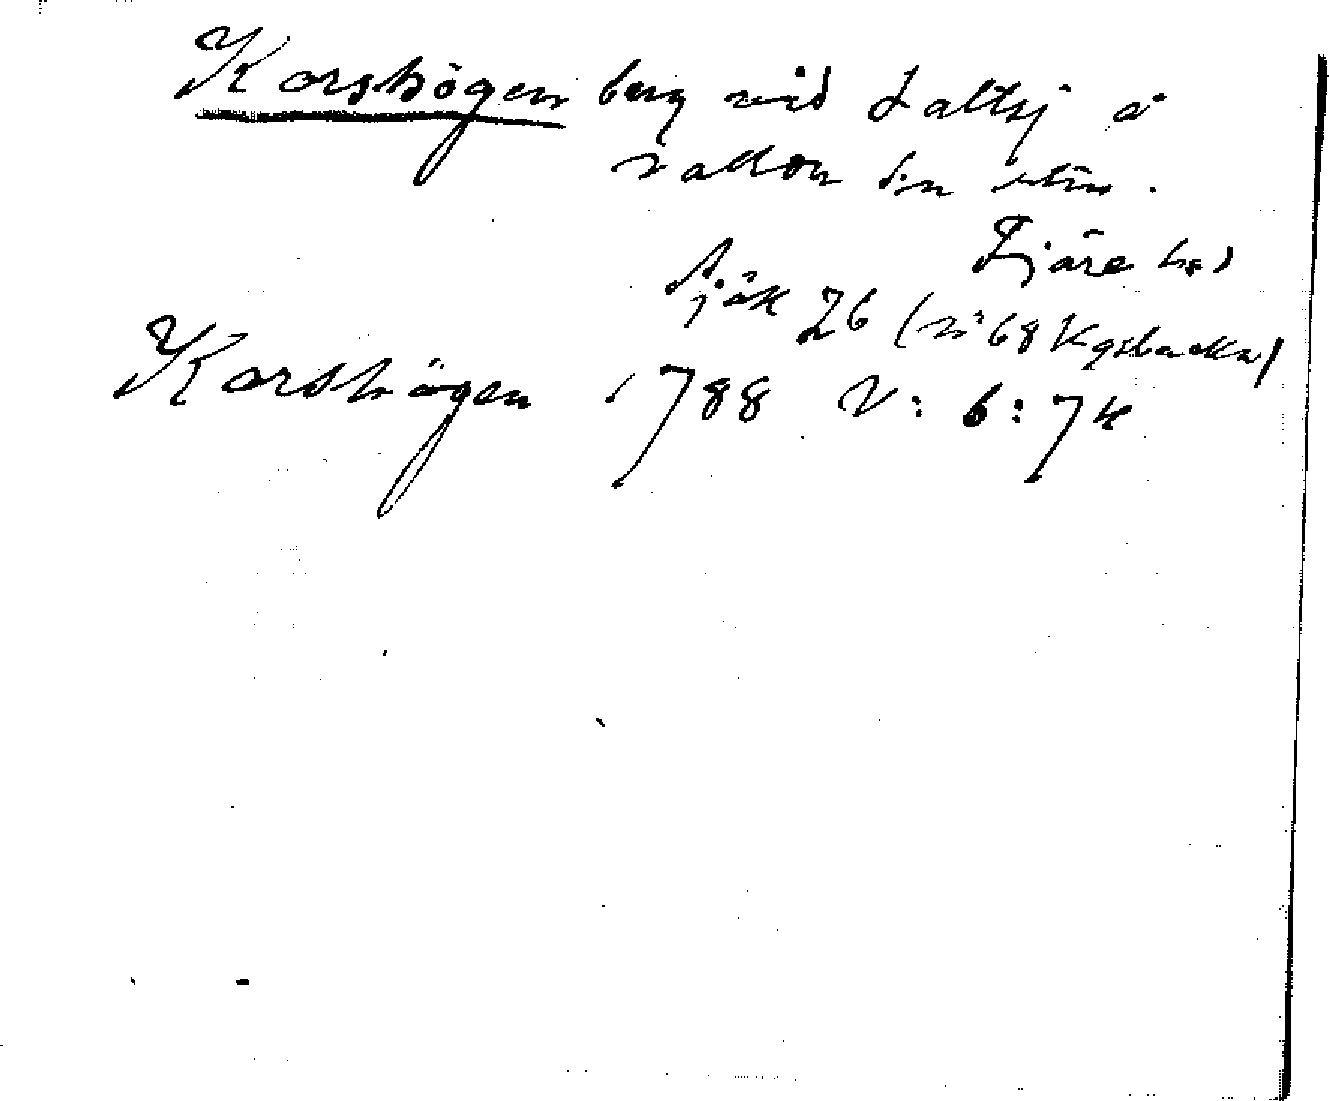 Korshögen berg vid Saltsj å
Fjäre hd
Sjök 26 (nö 68 Kgsbacka)
Korshögen 1788 V: 6: 74